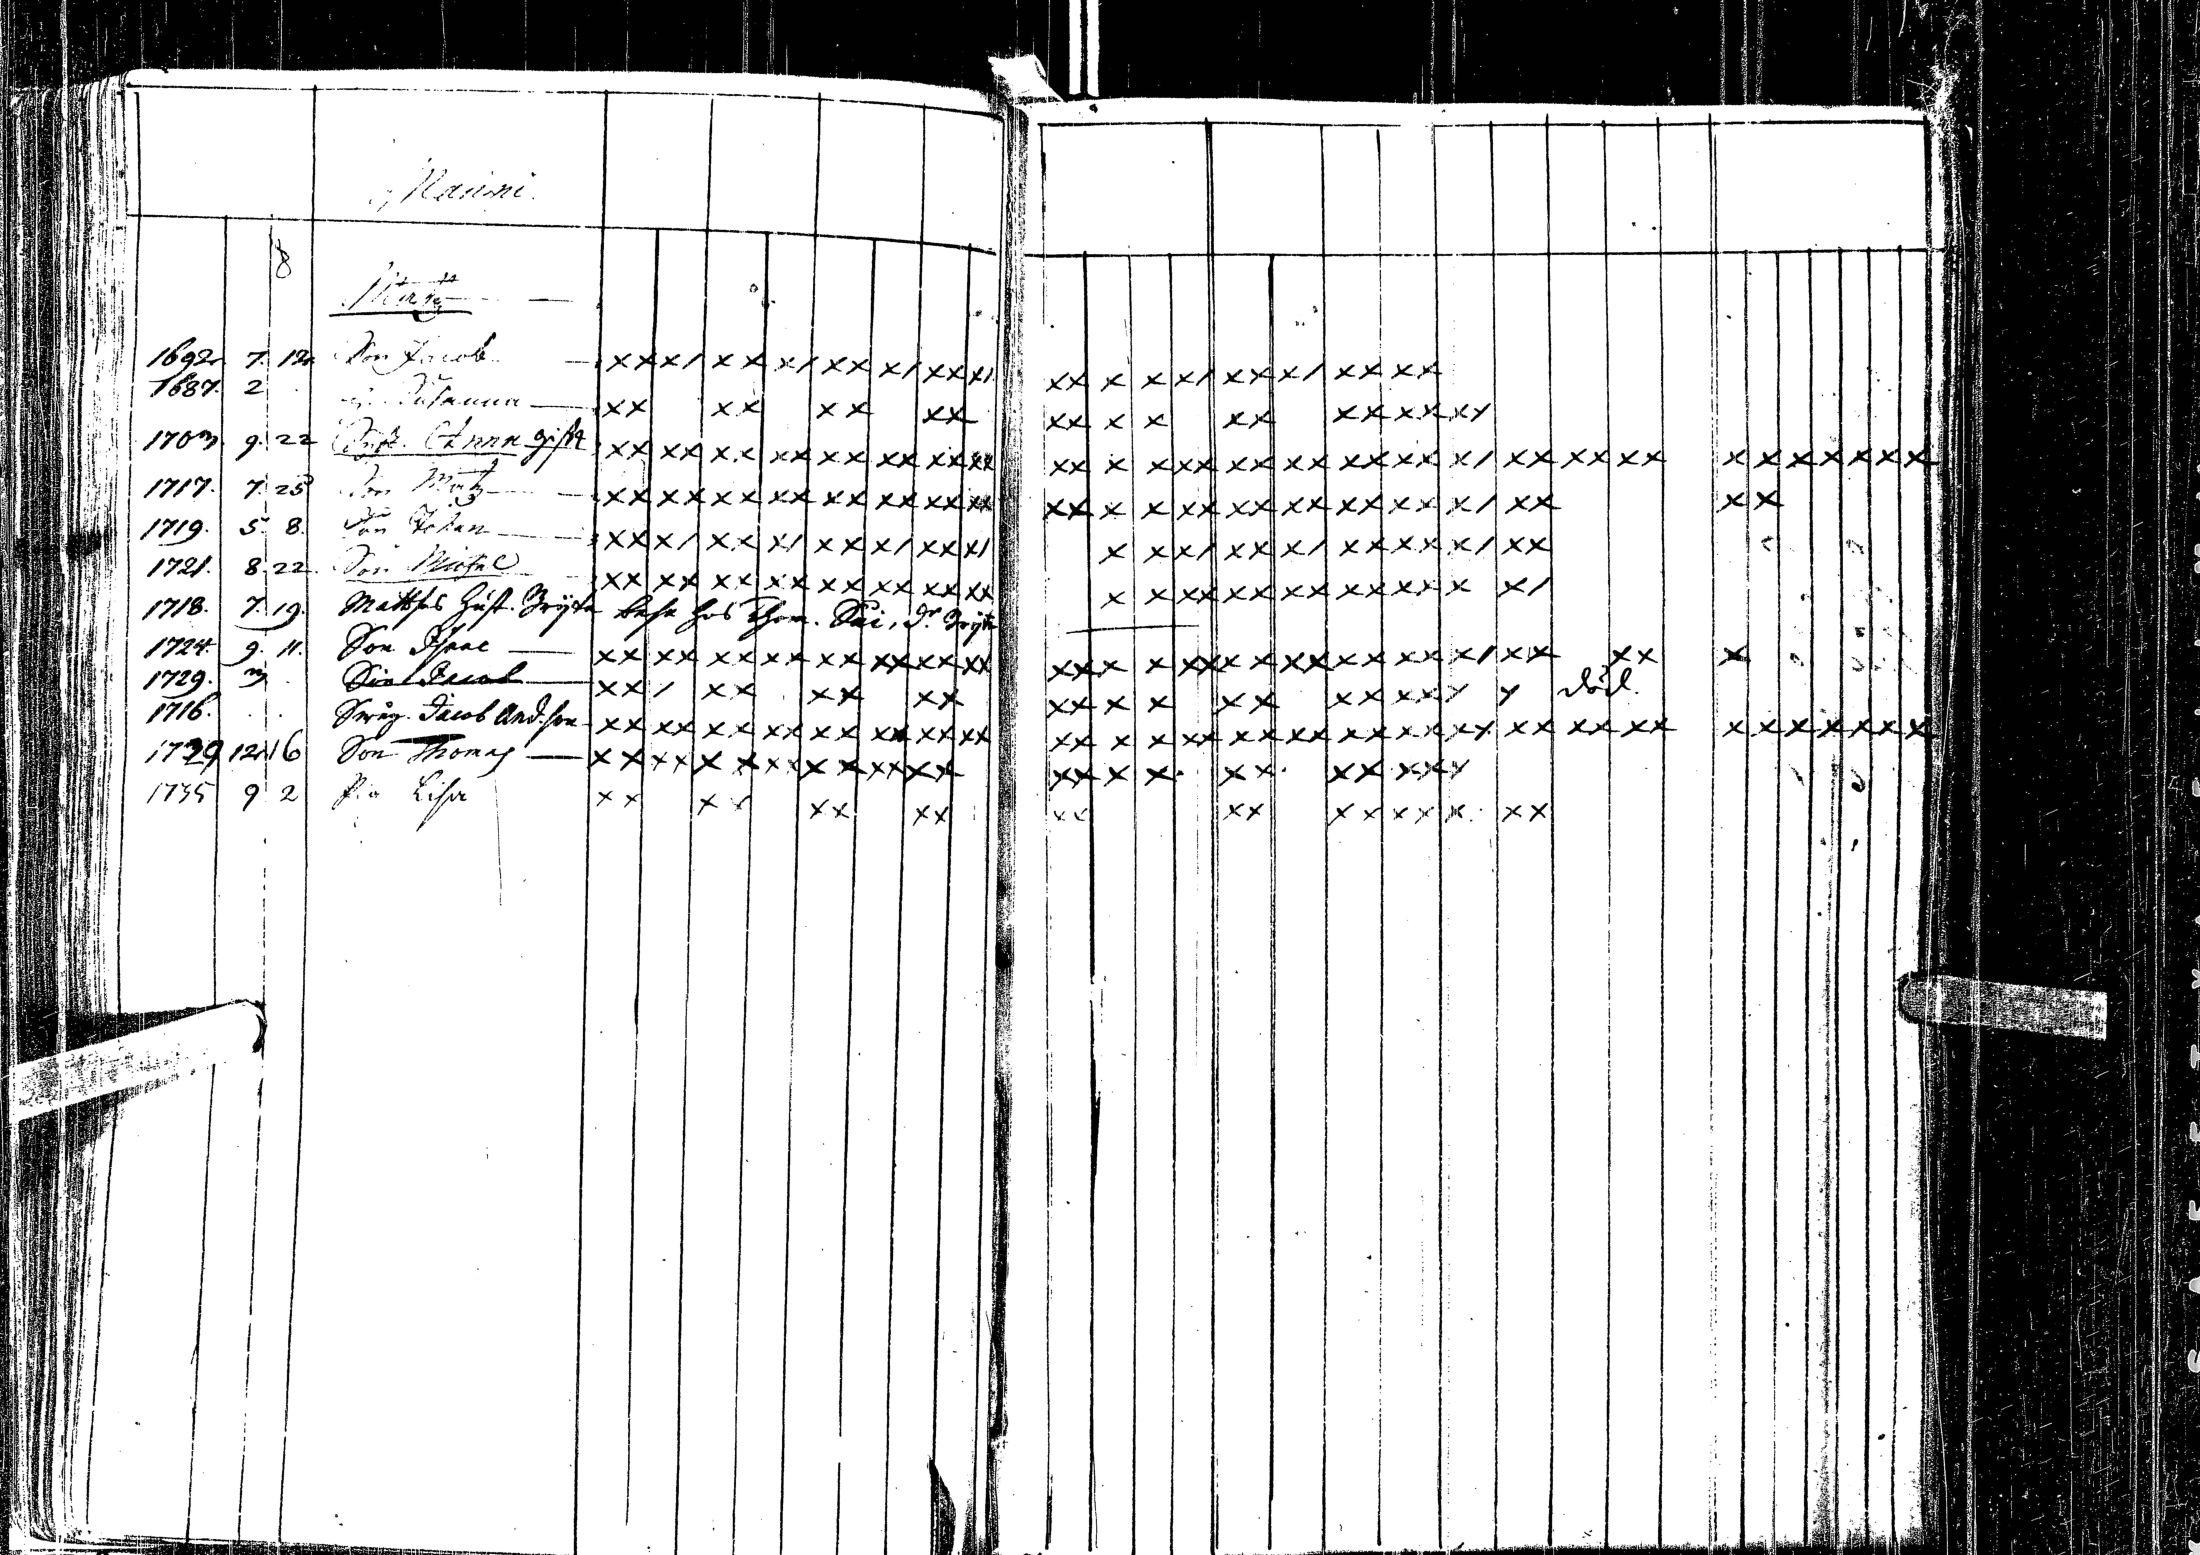 Maűni.
8
Matts
1692. 7. 12. Son Jacob xx x/ xx x/ xx x/ xx x/ xx x x x/ xx x/ xx xx
1687. 2 Susanna xx xx xx xx xx x x xx xx xx x/
1703. 9. 22 Anna gift xx xx xx xx xx xx xx xx xx x x xx xx xx xx xx x/ xx xx xx x x x x x x x
1717. 7. 25 Son Matz xx xx xx xx xx xx xx xx xx x x xx xx xx xx xx x/ xx x x
1719. 5. 8. Son Johan xx x/ xx x/ xx x/ xx x/ x x x/ xx x/ xx xx x/ xx
1721. 8. 22. Son Michel xx xx xx xx xx xx xx xx x x xx xx xx xx xx x x/
1718. 7. 19. Matthes Hust. Bryta hos Thom. Dr. Bryta
1724. 9. 11. Son Isaac xx xx xx xx xx xx xx xx xx x x xx xx xx xx xx x/ xx xx x
1729. 3 Son Jacob xx / xx xx xx xx x x xx xx xx / / död.
1716. Swåg. Jacob And.son xx xx xx xx xx xx xx xx xx x x xx xx xx xx xx x/ xx xx xx x x x x x x x
1729 12 16 Son Thomas xx xx xx xx xx xx xx xx x x xx xx xx /
1735 9 2 Pig Lisa xx xx xx xx xx xx xx xx x xx